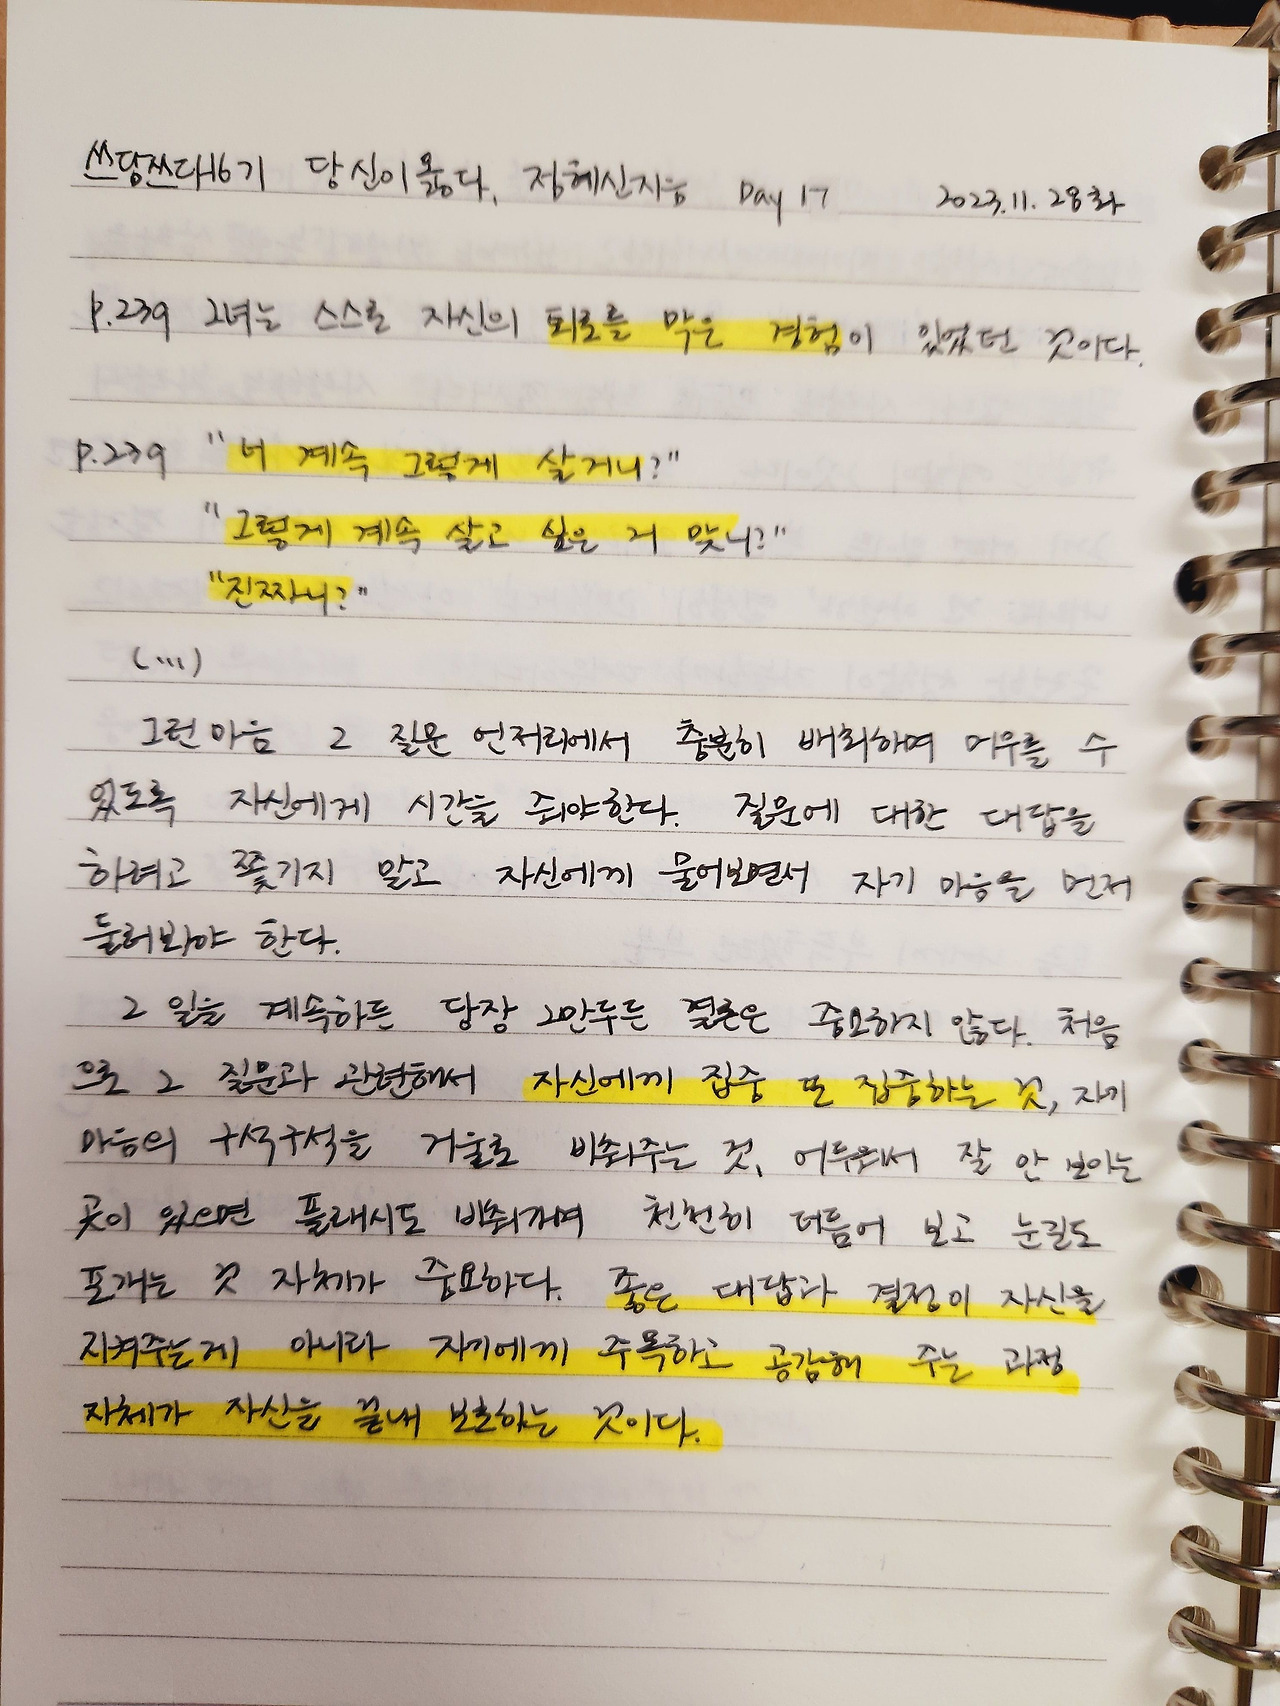 쓰담쓰다16기 당신이옳다, 정혜신지음 Day 17 2023.11.28화
p.239 그녀는 스스로 자신의 퇴로를 막은 경험이 있었던 것이다.
p.239 "너 계속 그렇게 살거니?"
"그렇게 계속 살고 싶은 거 맞니?"
"진짜니?"
(...)
그런마음 그 질문 언저리에서 충분히 배회하며 머무를 수
있도록 자신에게 시간을 줘야한다. 질문에 대한 대답을
하려고 쫓기지 말고 자신에게 물어보면서 자기 마음을 먼저
둘러봐야 한다.
그 일을 계속하든 당장 그만두든 결론은 중요하지 않다. 처음
으로 그 질문과 관련해서 자신에게 집중 또 집중하는 것, 자기
마음의 구석구석을 거울로 비춰주는 것, 어두워서 잘 안 보이는
곳이 있으면 플래시도 비춰가며 천천히 더듬어 보고 눈길도
포개는 것 자체가 중요하다. 좋은 대답과 결정이 자신을
지켜주는게 아니라 자기에게 주목하고 공감해 주는 과정
자체가 자신을 끝내 보호하는 것이다.